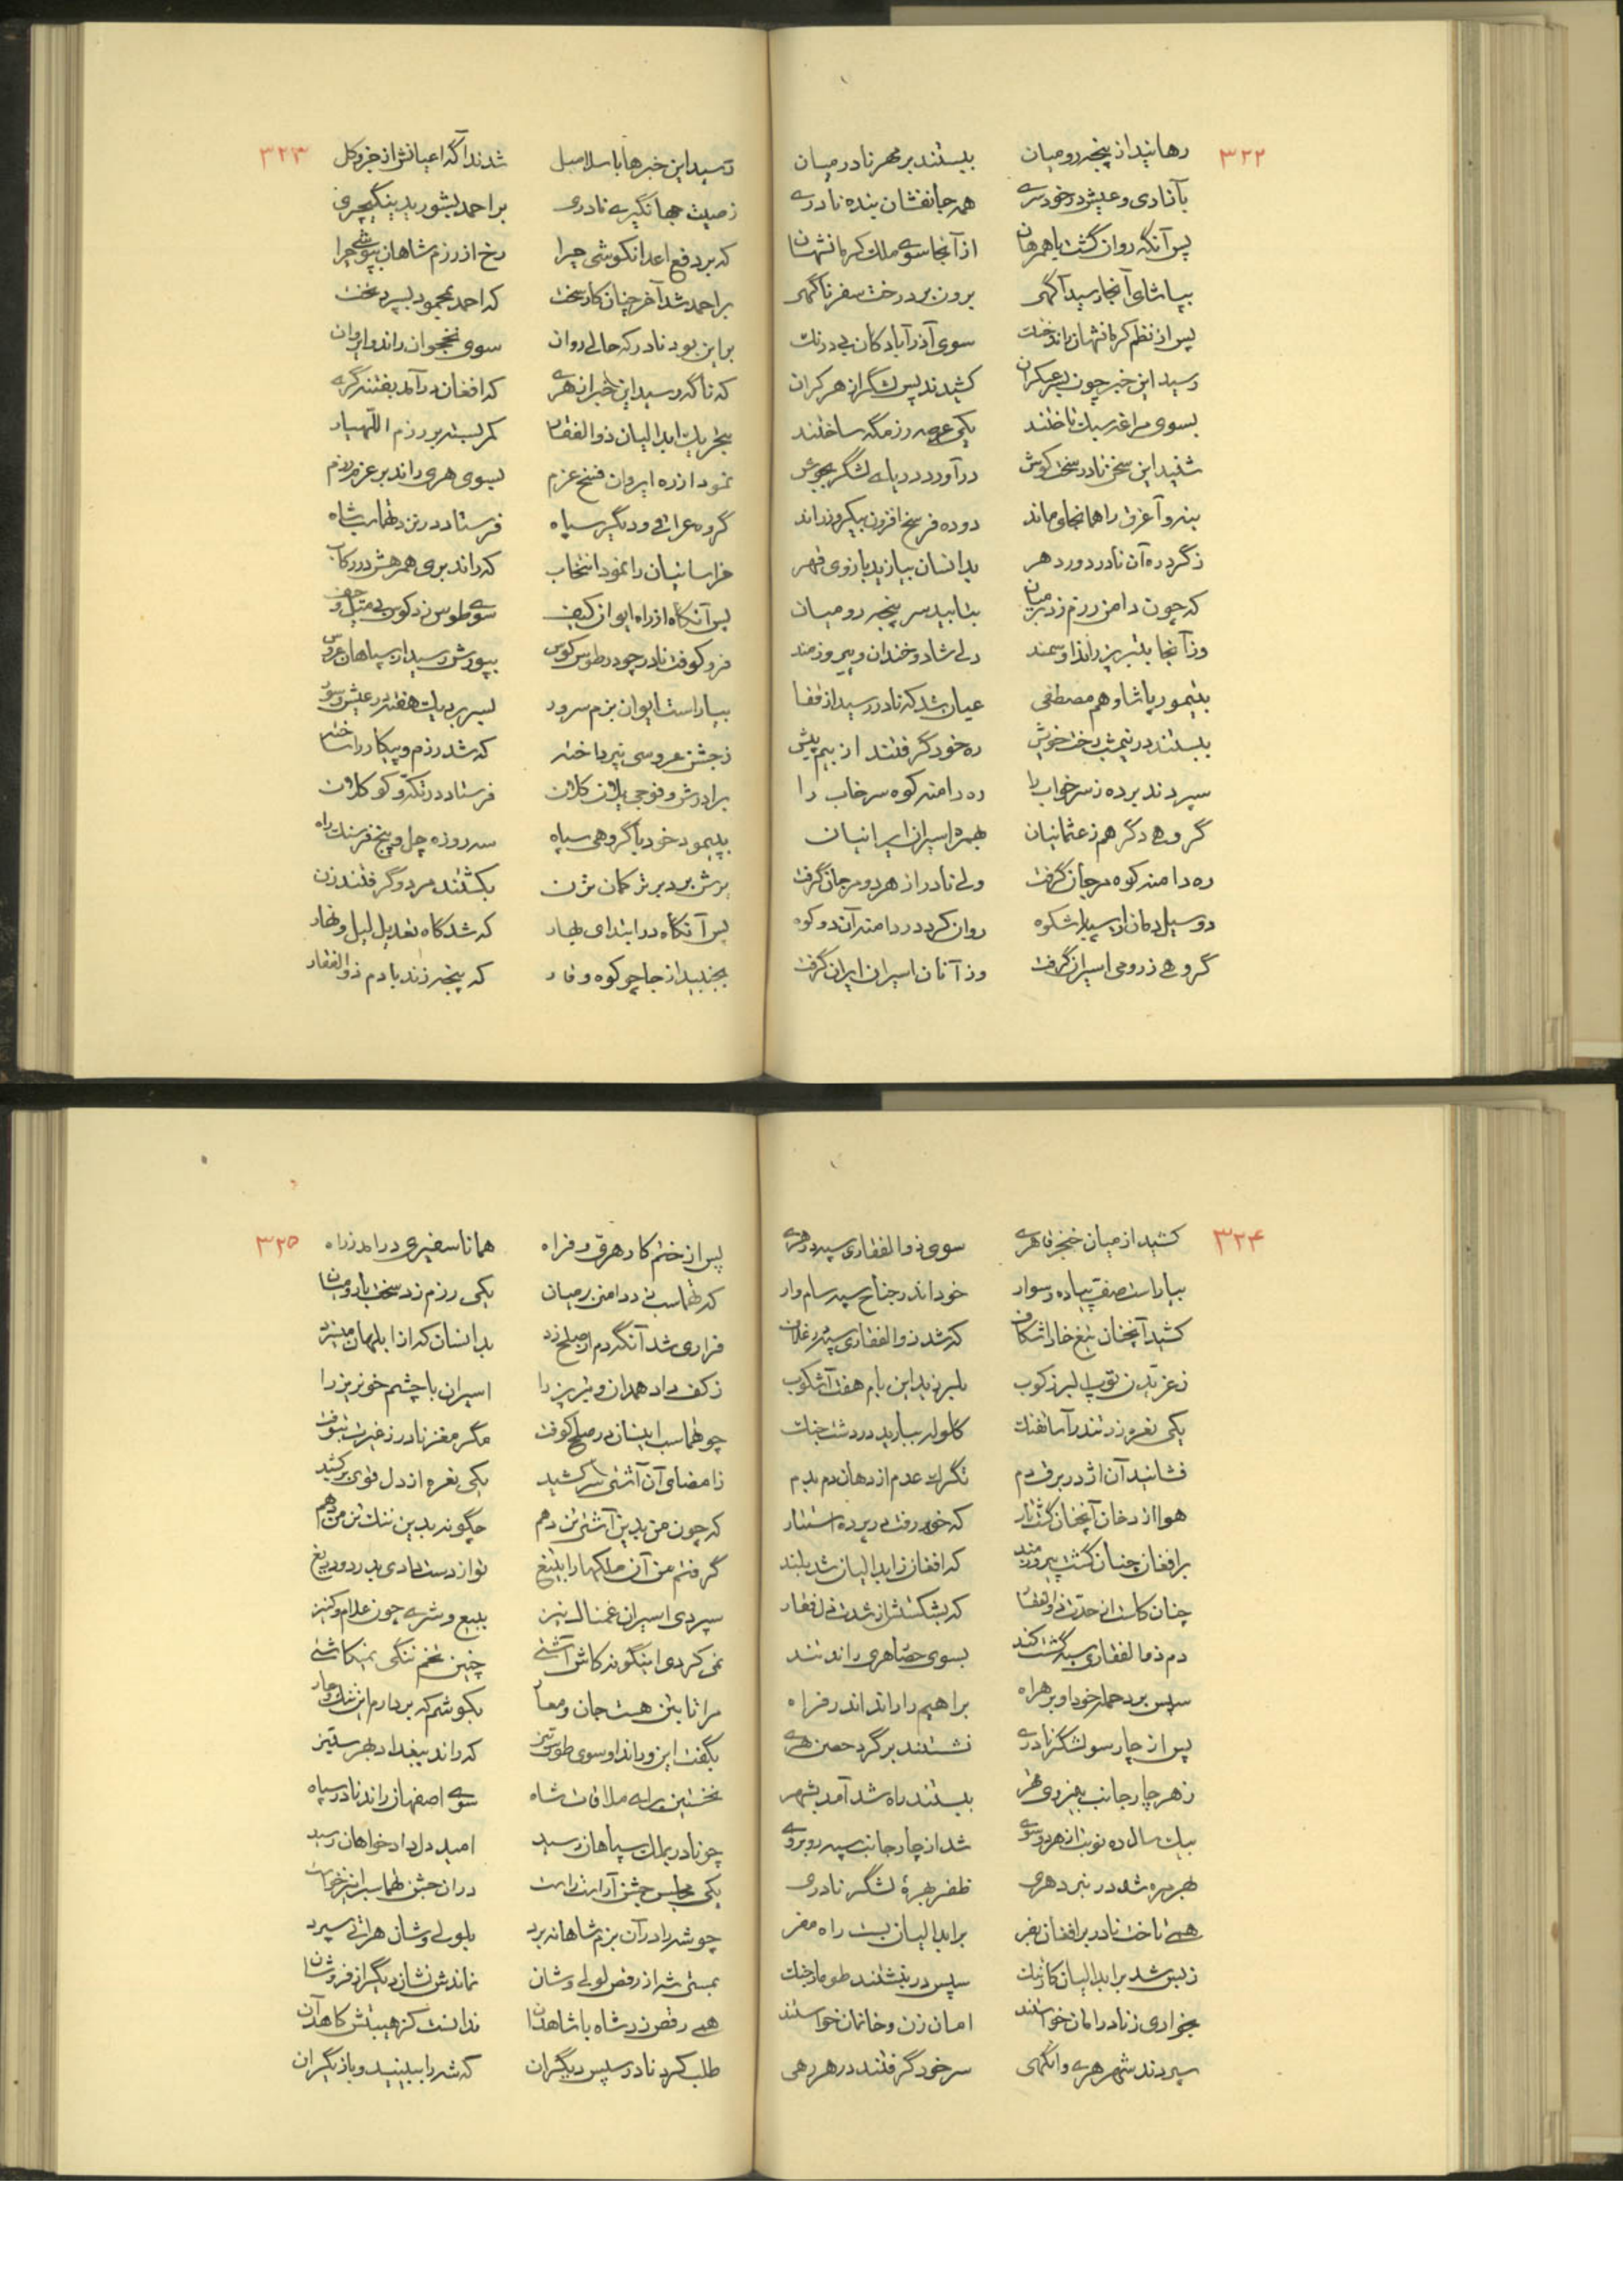 ۳۲۲
رهانید از پنجه رومیان ببستند بر مهر نادر میان
بآزادی و عیش در خود سری همه جانفشان بنده نادری
پس آنگه روان گشت با همرهان از آنجا سوی ملک کرمانشهان
بپاشای آنجا رسید آگهی برون برد رخت سفر ناگهی
پس از نظم کرمانشهان راند خنک سوی آذرآبادکان بی درنگ
رسید این خبر چون کشیدند پس لشگر از هر کران
بسوی مراغه سبک تاختند یکی عرصه رزمگه ساختند
شنید این سخن نادر سخت کوش درآورد دریای لشگر بجوش
بنه و آغرق را همانجای ماند دو ده فرسخ افزون بیکروز راند
ز گرد ره آن نادر دور دهر بدانسان بیازید بازوی قهر
که چون دامن رزم زد بر میان بتابید سر پنجه رومیان
وز آنجا بتبریز راند او سمند دلی شاد و خندان و پیروزمند
بتیمور پاشا و هم مصطفی عیان شد که نادر رسید از قفا
ببستند در نیمشب رخت خویش ره خود گرفتند از بیم پیش
سپردند برده ز سرخواب را ره دامنه کوه سرخاب را
گروهی دگر هم ز عثمانیان بهمره اسیران ایرانیان
ره دامنه کوه مرجان گرفت ولی نادر از هر دو مر جان گرفت
دو سیل دمان از سپاه شکوه روان کرد در دامنه آن دو کوه
گروهی ز رومی اسیران گرفت وز آنان اسیران ایران گرفت
۳۲۳
رسید این خبرها باسلامبل شدند آگه اعیانش از جزو کل
ز صیت جهانگیری نادری بر احمد بشورید ینگیچری
که بر دفع اعدا نکوشی چرا رخ از رزم شاهان بپوشی چرا
بر احمد شد آخر چنان کار سخت که احمد بمحمود بسپرد تخت
بر این بود نادر که حالی روان سوی نخجوان راند و ایروان
که ناگه رسید این خبر از هری که افغان درآمد بفتنه گری
بتحریک ابدالیان ذوالفقار کمر بسته بر رزم اللّهیار
نمود از ره ایروان فسخ عزم بسوی هری راند بر عزم رزم
گروه عراقی و دیگر سپاه فرستاد در نزد طهماسب شاه
خراسانیان را نمود انتخاب که راند بری همرهش در رکاب
پس آنگاه از راه ایوان کیف سوی طوس زد کوس بی
فرو کوفت نادر چو در طوس کوس بپورش رسید از سپاهان عروس
بیاراست ایوان بزم سرور بسر برد یک هفته در عیش و سور
ز جشن عروسی بپرداخته که شد رزم و پیکار را ساخته
برادرش و فوجی یلان کلان فرستاد در تکه و کوکلان
بپیمود خود با گروهی سپاه سه روزه چل و پنج فرسنگ راه
یرش برد بر ترکمان بکشتند مرد و گرفتند زن
پس آنگاه در ابتدای بهار که شد گاه تعدیل لیل و نهار
بجنبید از جا چو کوه وقار که پنجه زند با دم ذوالفقار
۳۲۴
کشید از میان خنجر قاهری سوی ذوالفقاری سپه در هری
بیاراست صف پیاده و سوار خود اندر جناح سپه سام وار
کشید آنچنان تیغ خارا شکاف که شد ذوالفقاری سپه در غلاف
ز غرّیدن توپ البرز کوب بلرزید این بام هفت آشکوب
یکی نعره زد تندر آسا تفنگ گلوله ببارید در دشت جنگ
فشانید آن اژدر برق دم تگرگ عدم از دهان دم بدم
هوا از دخان آنچنان گشت تار که خور رفت در پرده استتار
بر افغان چنان گشت پیروزمند که افغان ز ابدالیان شد بلند
چنان کاست از حدّت ذوالفقار که بشکستش از شدت ذی فقار
دم ذوالفقاری سپه گشت کند بسوی حصار هری راند تند
سپس برد حمله خود او بر هراه براهیم را راند اندر فراه
پس از چار سو لشکر نادری نشستند بر گرد حصن هری
ز هر چار جانب بنیروی قهر ببستند راه شد آمد بشهر
بیک سال ده نوبت از هر دو سوی شد از چار جانب سپه روبروی
بهر ره شد در نبرد هری ظفر بهرهٔ لشگر نادری
همی تاخت نادر بر افغان نفر بر ابدالیان بست راه مفر
ز بس شد بر ابدالیان کار تنگ سپس درنبشتند طومار جنگ
بخواری ز نادر امان خواستند امان زن و خانمان خواستند
سپردند شهر هری وانگهی سر خود گرفتند در هر رهی
۳۲۵
پس از ختم کار هری و فراه همانا سفیری درآمد ز راه
که طهماسب زد دامن بر میان یکی رزم زد سخت با رومیان
فراری شد آنگه دم از صلح زد بدانسان که از ابلهان میسزد
ز کف داد همدان و تبریز را اسیران با چشم خونریز را
چو طهماسب اینسان در صلح کوفت مگر مغز نادر ز غیرت بتوفت
ز امضای آن آشتی سر کشید یکی نعره از دل قوی برکشید
که چون من بدین آشتی تن دهم چگونه بدین ننگ تن من دهم
گرفتم من آن ملکها را بتیغ تو از دست دادی بدرد و دریغ
سپردی اسیران غمناک نیز ببیع و شری چون غلام و کنیز
نمی کردی اینگونه کاش آشتی چنین تخم ننگی نمیکاشتی
مرا تا بتن هست جان و بکوشم که بردارم این ننگ و عار
بگفت این و راند او سوی طوس تیز که راند ببغداد بهر ستیز
نخستین برای ملاقات شاه سوی اصفهان راند نادر سپاه
چو نادر بملک سپاهان رسید امید دل دادخواهان رسید
یکی مجلس جشن آراست راست در آن جشن طهماسب را نیز خواست
چو شه را در آن بزم شاهانه برد بلولی وشان هراتی سپرد
بمستی شه از رقص لولی وشان نماندش نشان دیگر از فرّ و شان
همی رقص زد شاه با شاهدان ندانست کز هیبتش کاهد آن
طلب کرد نادر سپس دیگران که شه را ببینید و بازیگران